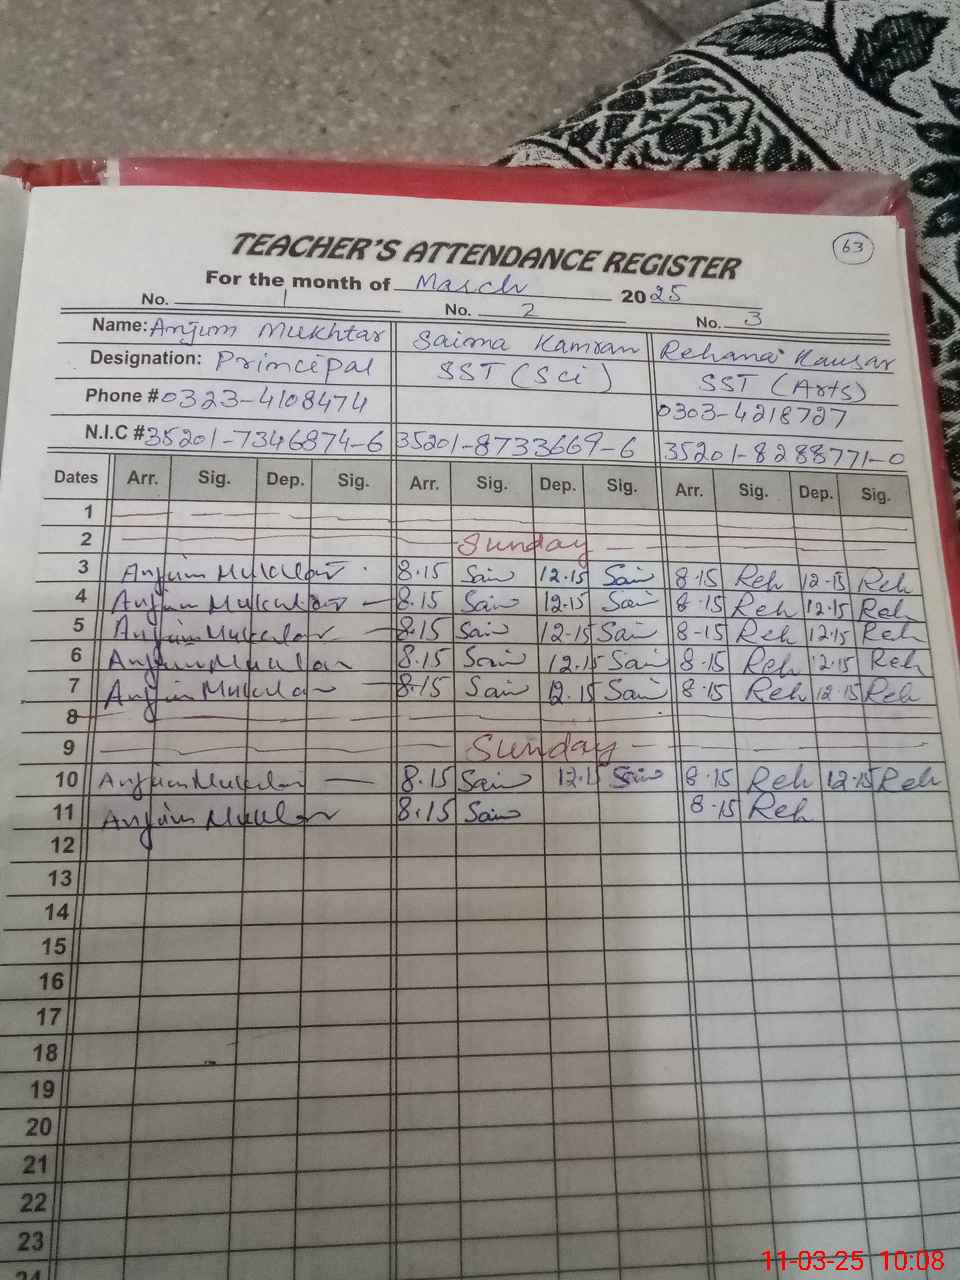 63
TEACHER'S ATTENDANCE REGISTER
For the month of March 2025
No. 1 No. 2 No. 3
Name: Anjum Mukhtar Saima Kamran Rehana Kausar
Designation: Principal SST (Sci) SST (Arts)
Phone # 0323-4108474 0303-4218727
N.I.C # 35201-7346874-6 35201-8733669-6 35201-8288771-0
Dates Arr. Sig. Dep. Sig. Arr. Sig. Dep. Sig. Arr. Sig. Dep. Sig.
1
2 Sunday
3 Anjum Mukhtar 8.15 Sai 12.15 Sai 8.15 Reh 12.15 Reh
4 Anjum Mukhtar 8.15 Sai 12.15 Sai 8.15 Reh 12.15 Reh
5 Anjum Mukhtar 8.15 Sai 12-15 Sai 8-15 Reh 12.15 Reh
6 Anjum Mukhtar 8.15 Sai 12.15 Sai 8.15 Reh 12.15 Reh
7 Anjum Mukhtar 8.15 Sai 12.15 Sai 8.15 Reh 12.15 Reh
8
9 Sunday
10 Anjum Mukhtar 8.15 Sai 12.15 Sai 8.15 Reh 12.15 Reh
11 Anjum Mukhtar 8.15 Sai 8.15 Reh
12
13
14
15
16
17
18
19
20
21
22
23
24
11-03-25 10:08